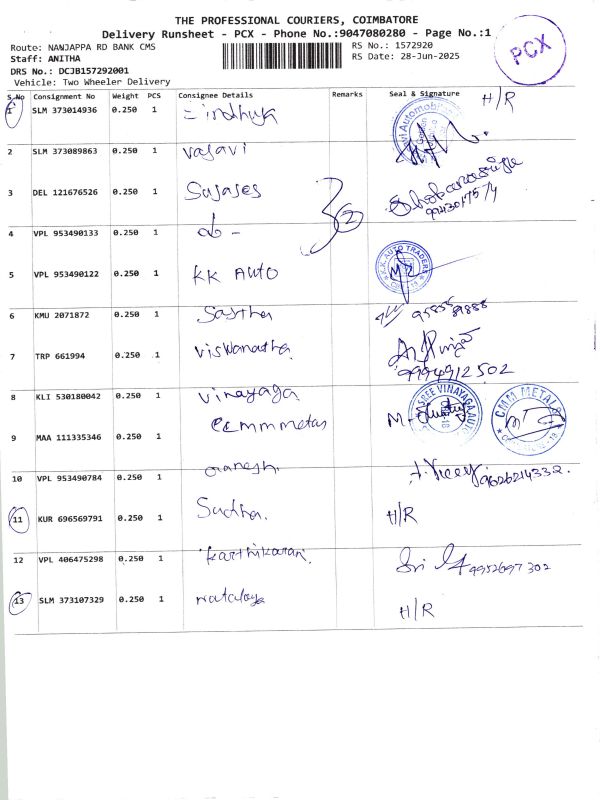 THE PROFESSIONAL COURIERS, COIMBATORE
Delivery Runsheet - PCX - Phone No.:9047080280 - Page No.:1
PCX
Route: NANJAPPA RD BANK CMS
RS No.: 1572920
Staff: ANITHA
RS Date: 28-Jun-2025
DRS No.: DCJB157292001
Vehicle: Two Wheeler Delivery
S.No Consignment No Weight PCS Consignee Details Remarks Seal & Signature
1 SLM 373014936 0.250 1 Sindhuja H/R
2 SLM 373089863 0.250 1 vasavi
3 DEL 121676526 0.250 1 Sujases
4 VPL 953490133 0.250 1
5 VPL 953490122 0.250 1 KK AUTO K.K. AUTO TRADERS
6 KMU 2071872 0.250 1 Sastha
7 TRP 661994 0.250 1 Viswanatha 9994912502
8 KLI 530180042 0.250 1 Vinayaga SREE VINAYAGA
9 MAA 111335346 0.250 1 CMM METAL
10 VPL 953490784 0.250 1 Ganesh 9626214332.
11 KUR 696569791 0.250 1 Sudha. H/R
12 VPL 406475298 0.250 1 Karthikaran Sri 9952697302
13 SLM 373107329 0.250 1 H/R